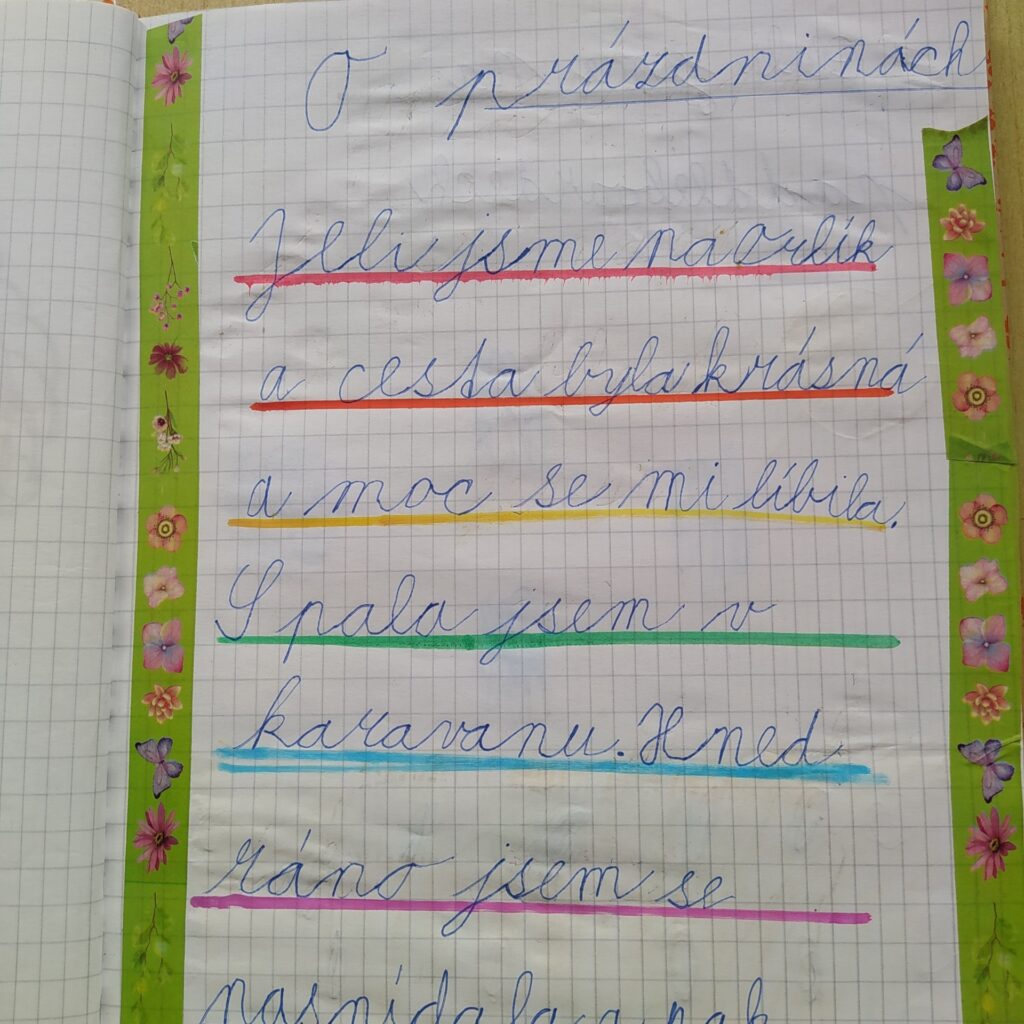 O prázdninách
Jeli jsme na orlík
a cesta byla krásná
a moc se mi líbila.
Spala jsem v
karavanu. Hned
ráno jsem se
nasnídala a pak